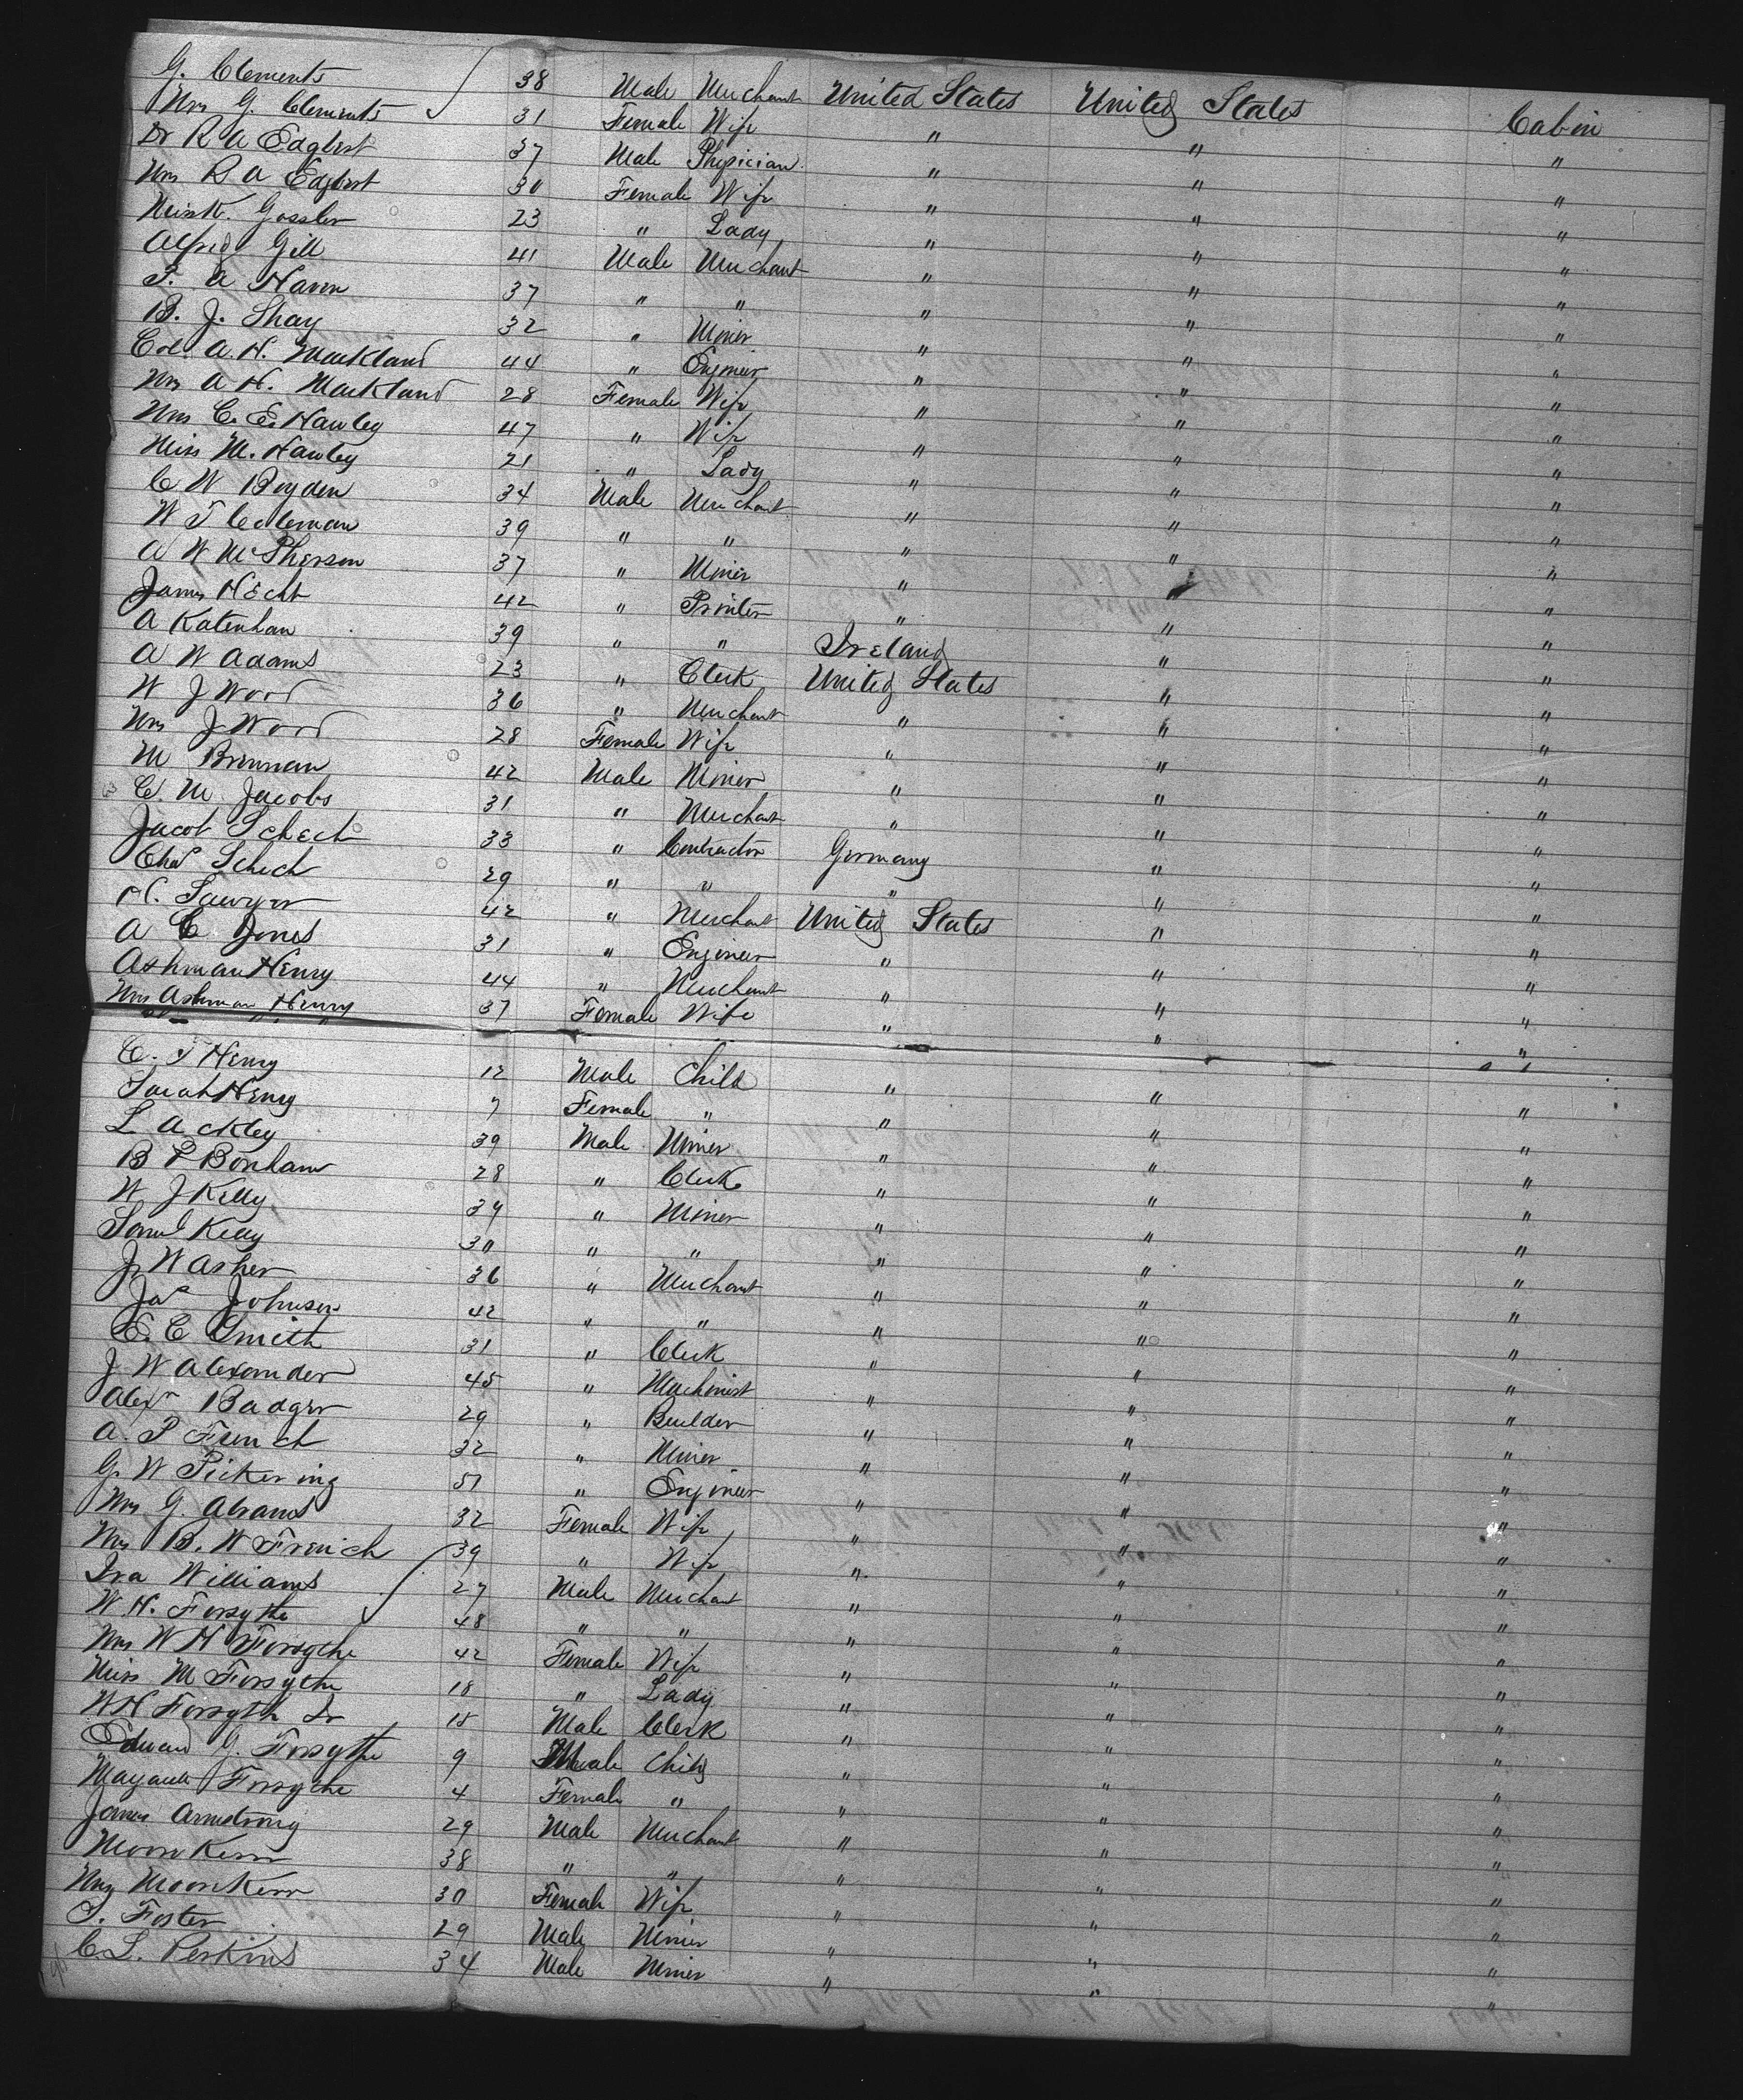 G. Clements 38 Male Merchant United States United States Cabin
Mrs G. Clements 31 Female Wife " " "
Dr R A Edgbert 37 Male Physician " " "
Mrs R A Edgbert 30 Female Wife " " "
Miss K. Gossler 23 " Lady " " "
Alfred Gill 41 Male Merchant " " "
T. A Haven 37 " " " " "
B. J. Shay 32 " Miner " " "
Col. A. H. Markland 44 " Engineer " " "
Mrs A H. Markland 28 Female Wife " " "
Mrs C. E. Hawley 47 " Wife " " "
Miss M. Hawley 21 " Lady " " "
C W Boyden 34 Male Merchant " " "
W T Coleman 39 " " " " "
A W McPherson 37 " Miner " " "
James Hecht 42 " Printer " " "
A Katenhan 39 " " Ireland " "
A W Adams 23 " Clerk United States " "
W J Wood 36 " Merchant " " "
Mrs J Wood 28 Female Wife " " "
M Brennan 42 Male Miner " " "
C. M Jacobs 31 " Merchant " " "
Jacob Schech 33 " Contractor Germany " "
Chas Schech 29 " " " " "
H. Sawyer 42 " Merchant United States " "
A C Jones 31 " Engineer " " "
Ashman Henry 44 " Merchant " " "
Mrs Ashman Henry 37 Female Wife " " "
C. T Henry 12 Male Child " " "
Sarah Henry 7 Female " " " "
L Ackley 39 Male Miner " " "
B F Bonham 28 " Clerk " " "
W J Kelly 34 " Miner " " "
Saml Kelly 30 " " " " "
J W Asher 36 " Merchant " " "
Jas Johnson 42 " " " " "
E. C Smith 31 " Clerk " " "
J W Alexander 45 " Machinist " " "
Alexr Badger 29 " Builder " " "
A. P French 32 " Miner " " "
G. W Pickering 51 " Engineer " " "
Mrs G. Abrams 32 Female Wife " " "
Mrs B. W French 39 " Wife " " "
Ira Williams 27 Male Merchant " " "
W. H. Forsythe 48 " " " " "
Mrs W H Forsythe 42 Female Wife " " "
Miss M Forsythe 18 " Lady " " "
W H Forsyth Jr 15 Male Clerk " " "
Edward G. Forsythe 9 Male Child " " "
Forsythe 4 Female " " " "
James Armstrong 29 Male Merchant " " "
Moore Kerr 38 " " " " "
Mrs Moore Kerr 30 Female Wife " " "
S. Foster 29 Male Miner " " "
C. L. Perkins 34 Male Miner " " "